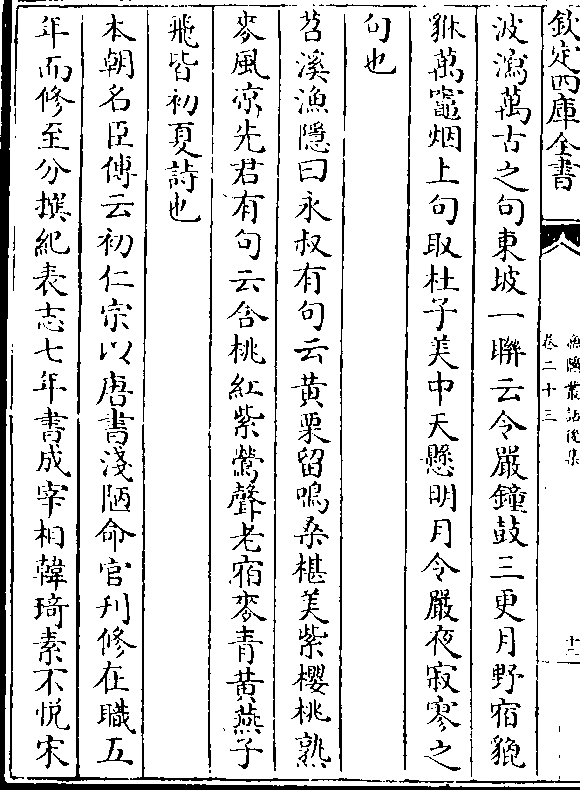 欽定四庫全書
漁隱叢話後集
卷二十三
十二
波瀉萬古之句東坡一聯云令嚴鐘鼓三更月野宿貔
貅萬竈烟上句取杜子美中天懸明月令嚴夜寂寥之
句也
苕溪漁隱曰永叔有句云黃栗留鳴桑椹美紫櫻桃熟
麥風涼先君有句云含桃紅紫鶯聲老宿麥青黃燕子
飛皆初夏詩也
本朝名臣傳云初仁宗以唐書淺陋命官刋修在職五
年而修至分撰紀表志七年書成宰相韓琦素不悦宋